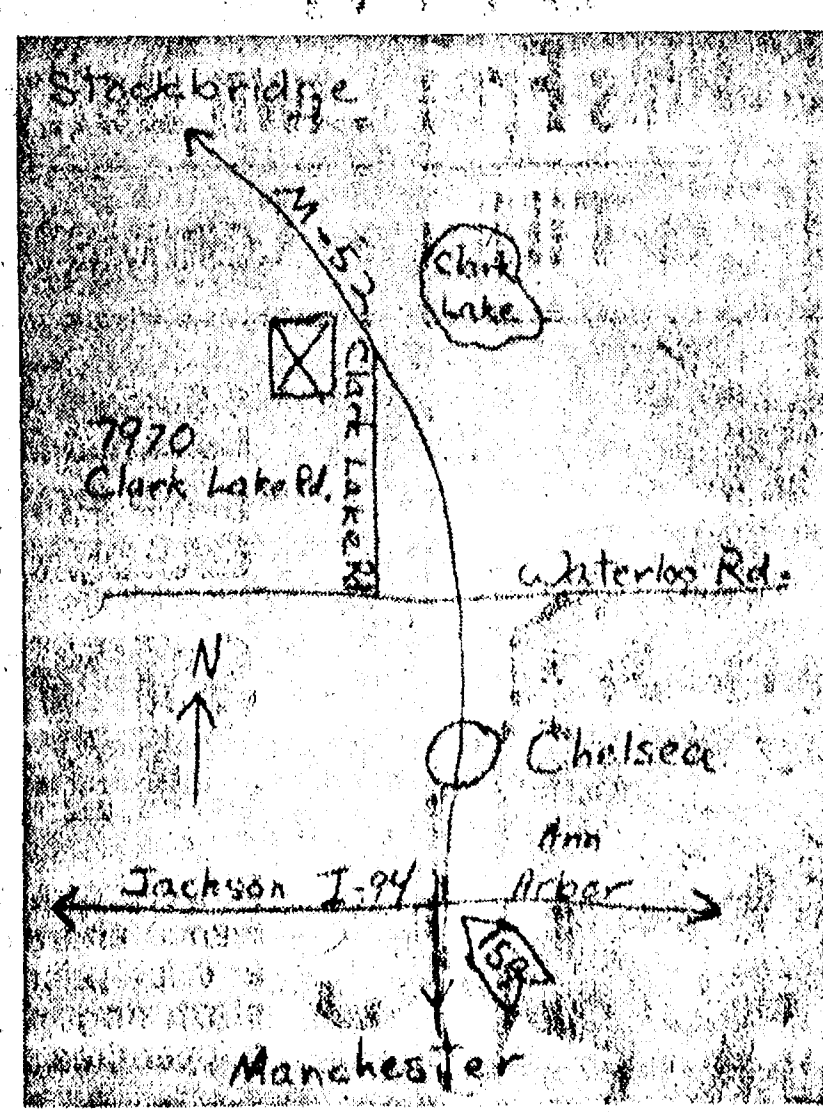 Stockbridge
M-52
Clark
Lake
Clark Lake Rd
7970
Clark Lake Rd.
Waterloo Rd.
N
Chelsea
Ann
Arbor
Jackson I-94
159
Manchester